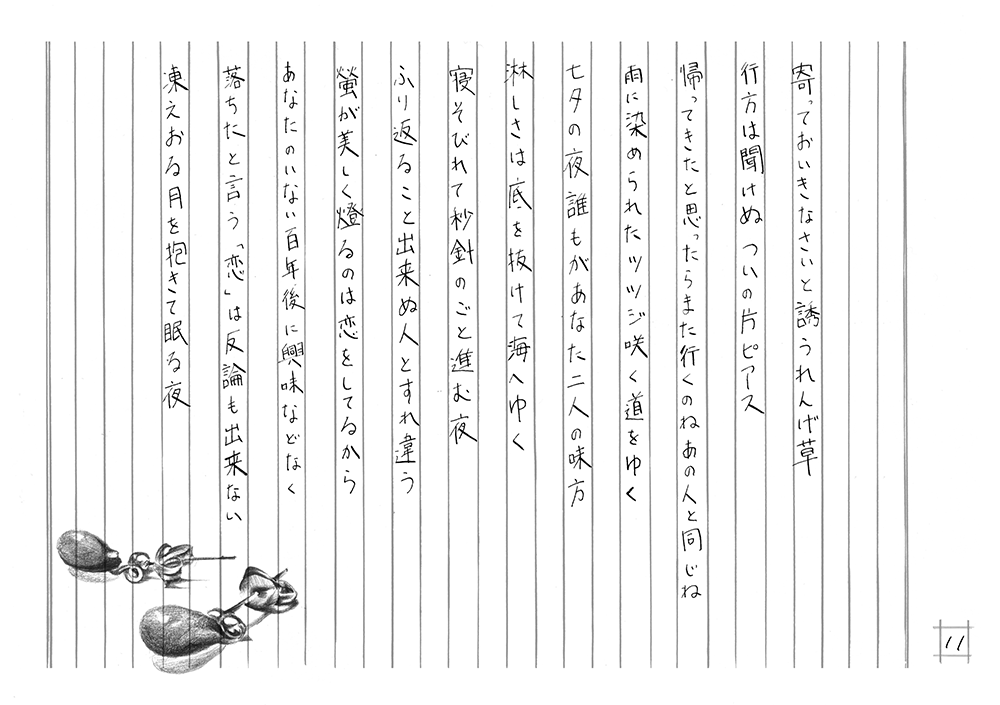 寄っておいきなさいと誘うれんげ草
行方は聞けぬ ついの片ピアス
帰ってきたと思ったらまた行くのねあの人と同じね
雨に染められたツツジ咲く道をゆく
七夕の夜誰もがあなた二人の味方
淋しさは底を抜けて海へゆく
寝そびれて秒針のごと進む夜
ふり返ること出来ぬ人とすれ違う
螢が美しく燈るのは恋をしてるから
あなたのいない百年後に興味などなく
落ちたと言う「恋」は反論も出来ない
凍えおる月を抱きて眠る夜
11